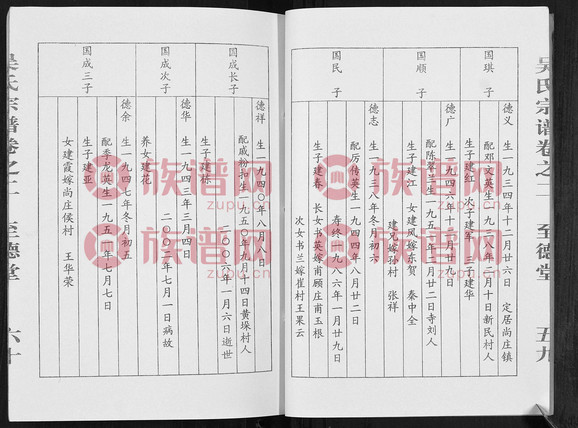 吴氏宗谱卷之二 至德堂 五九
国琪 子
德义 生一九三四年十二月廿六日 定居尚庄镇
配邓文英生一九三八年三月十日新民村人
生子建红 次子建军 三子建华
国顺 子
德广 生一九四六年十月廿九日
配陈翠兰生一九五一年二月廿二日寺刘人
生子建江 女建凤嫁东贺 秦中全
建兄嫁孙村 张祥
国民 子
德志 生一九三八年冬月六日
配厉传英生一九四四年八月廿二日
寿终一九八六年一月廿九日
生子建春 长女书英嫁甫顾庄甫玉根
次女书兰嫁崔村王果云
国成长子
德祥 生一九四〇年八月八日
配戚粉扣生一九五〇年九月十四日黄垛村人
二〇〇六年一月六日逝世
生子建栋
国成次子
德华 生一九四三年三月四日
二〇〇三年七月一日病故
养女建花
国成三子
德余 生一九四七年冬月初五
配季龙英生一九五一年七月七日
生子建亚
女建霞嫁尚庄侯村 王华荣
吴氏宗谱卷之二 至德堂 六十
族谱网
zupu.cn